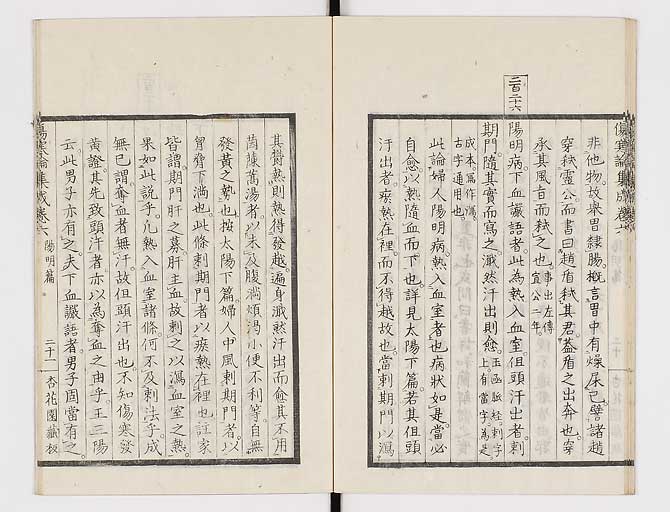 傷寒論集成卷六
非他物。故舉胃隸腸。概言胃中有燥屎已。譬諸趙
穿弒靈公。而書曰趙盾弒其君。蓋盾之出奔也。穿
承其風旨而弒之也。事出左傳宣公二年。
二百二十六
陽明病下血讝語者。此為熱入血室。但頭汗出者。刺
期門。隨其實而寫之。濈然汗出則愈。玉函脉經。刺字上有當字。為是。
成本寫作瀉。古字通用也。
此論婦人陽明病。熱入血室者也。病狀如是。當必
自愈。以熱隨血而下也。詳見太陽下篇。若其但頭
汗出者。瘀熱在裡。而不得越故也。當刺期門以瀉
其鬱熱。則熱得發越。遍身濈然汗出而愈。其不用
茵蔯蒿湯者。以未及腹滿煩渴小便不利等。自無
發黃之勢也。按太陽下篇。婦人中風刺期門者。以
胷脅下滿也。此條刺期門者。以瘀熱在裡也。註家
皆謂。期門肝之募。肝主血。故刺之以瀉血室之熱。
果如此說乎。凡熱入血室諸條。何不及刺法乎。成
無已謂。奪血者無汗。故但頭汗出也。不知傷寒發
黃證。其先致頭汗者。亦以為奪血之由乎。王三陽
云。此男子亦有之。夫下血讝語者。男子固當有之。
傷寒論集成卷六 陽明篇 二十一 杏花園藏板